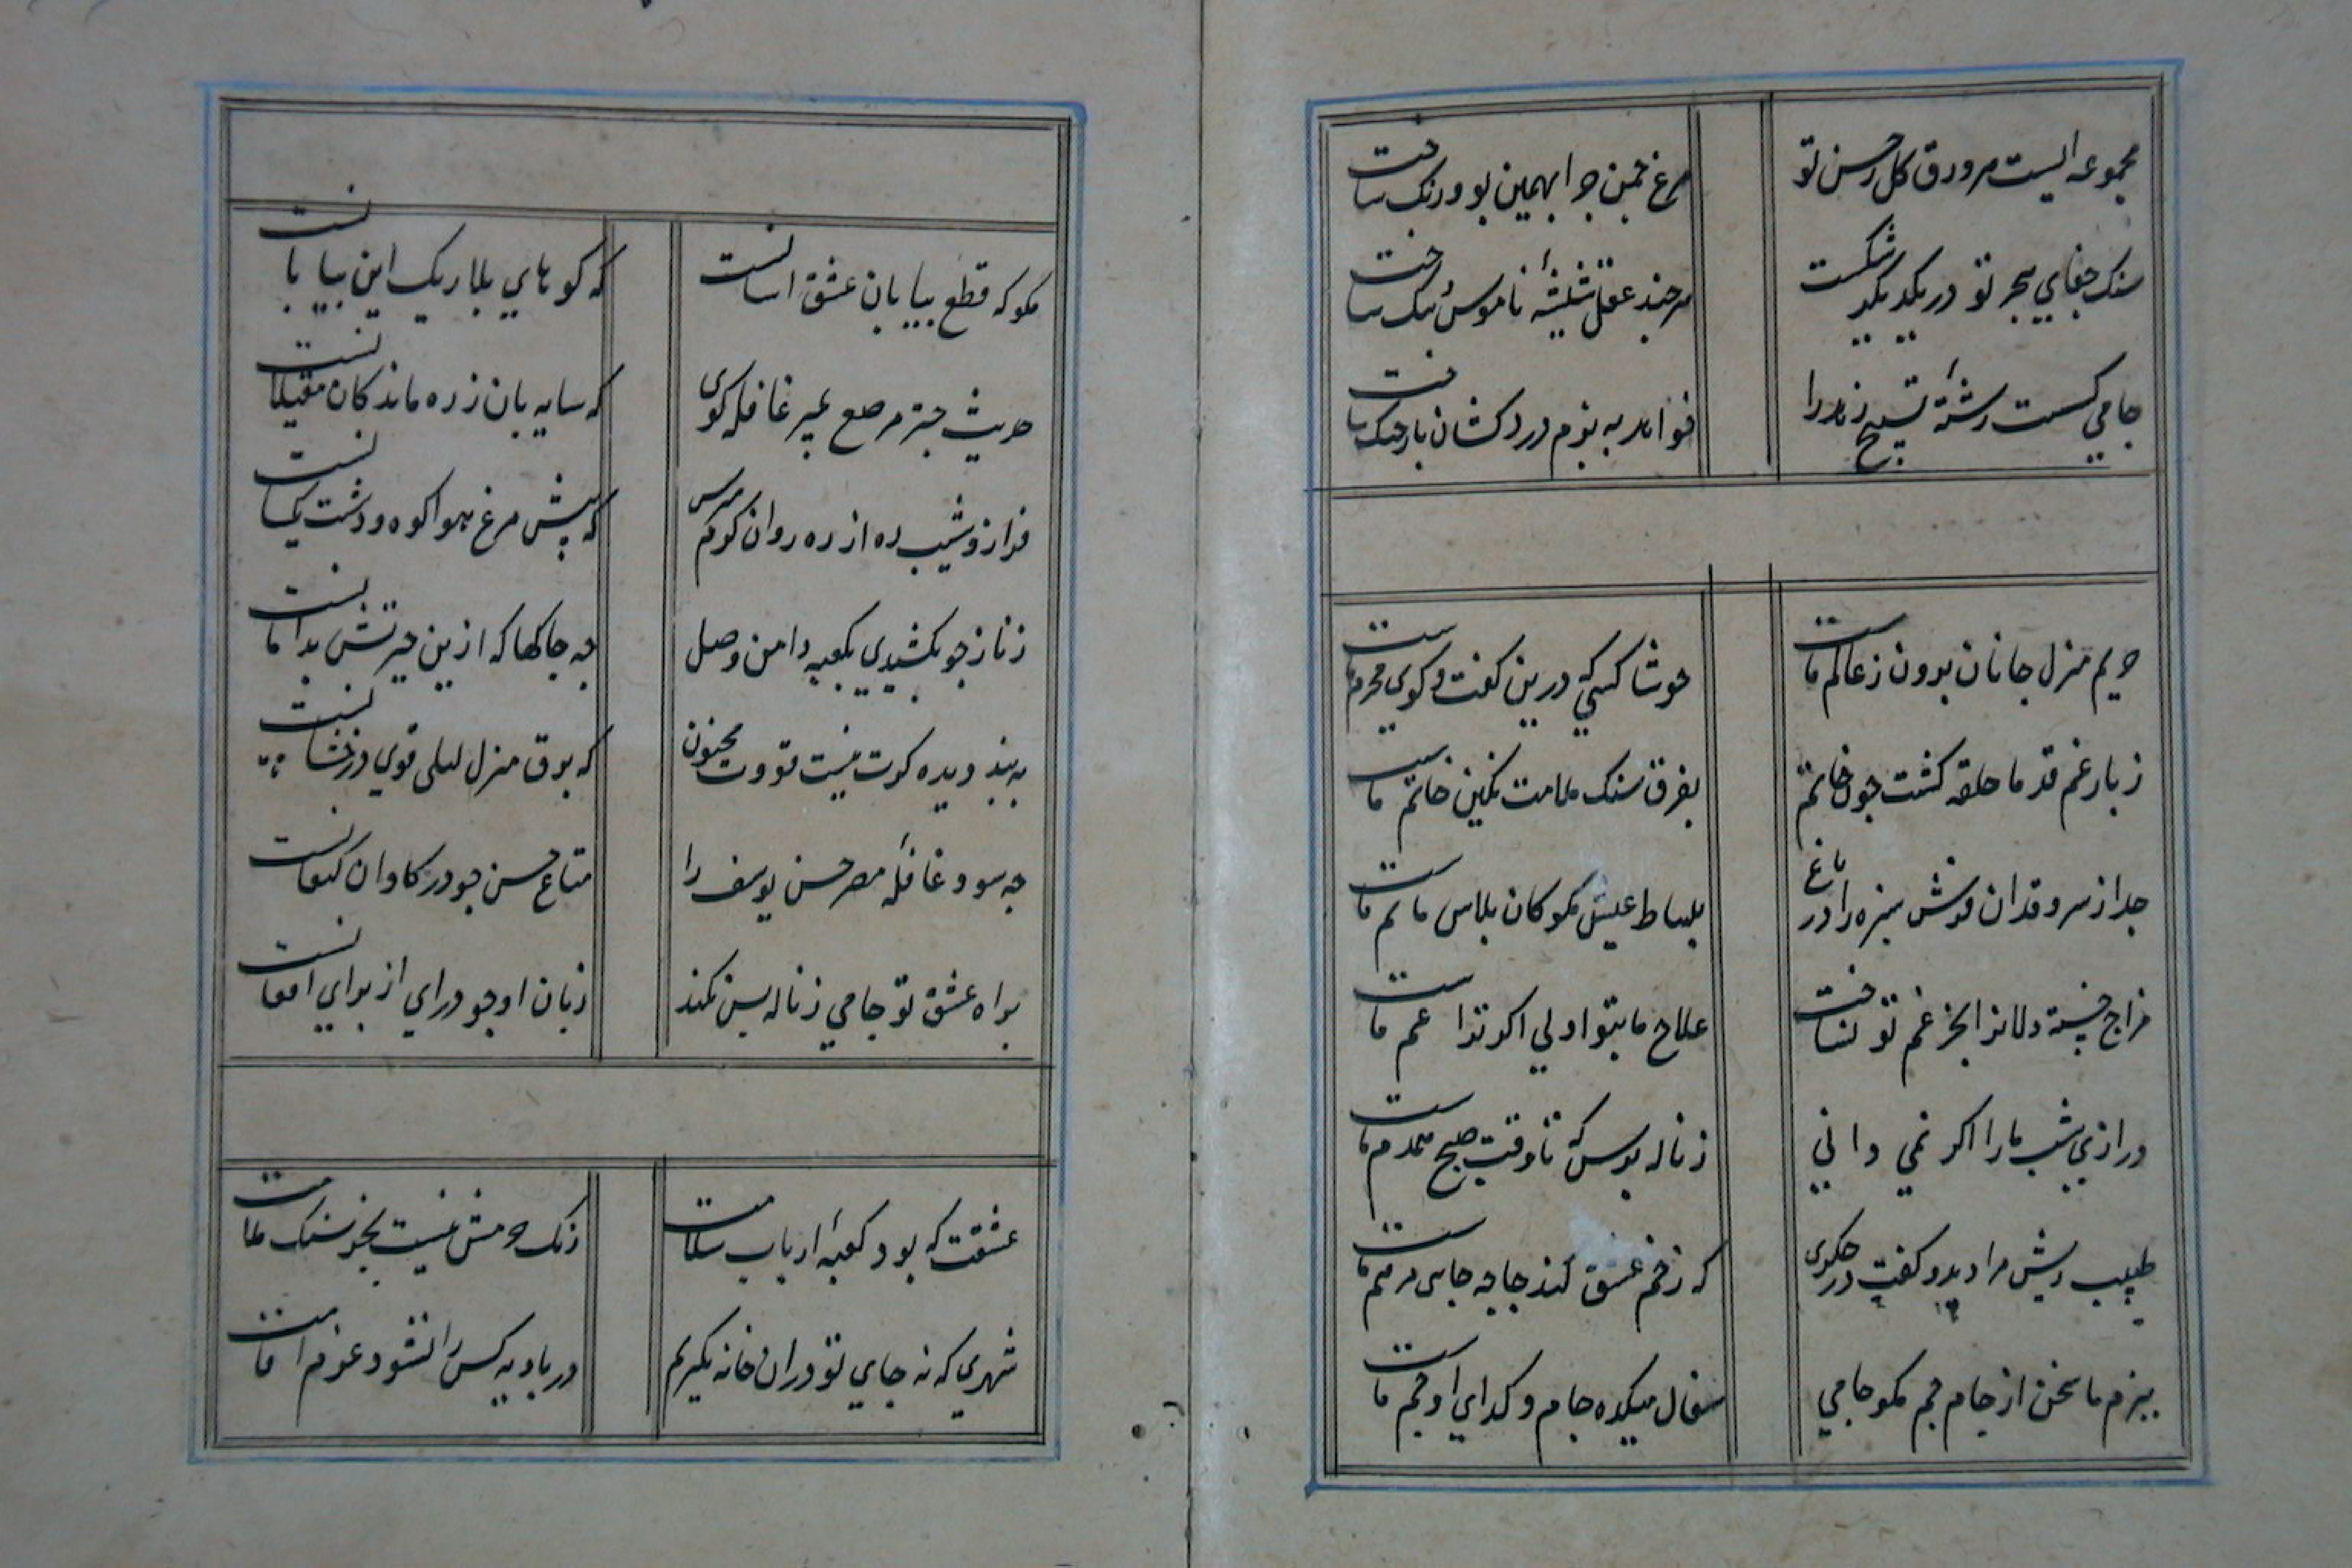 مجموعه ایست هر ورق کل ز حسن تو
مرغ چمن چرا بهمین بو و رنک ساخت
سنک جفای هجر تو در یکدیکر شکست
هر چند عقل شیشهٔ ناموس ننک ساخت
جامی کسست رشتهٔ تسبیح زهد را
بزم درد کشان باز جنک ساخت
حریم منزل جانان برون ز عالم ماست
خوشا کسیکه درین کفت و کوی محرم ماست
ز بار غم قد ما حلقه کشت جون خاتم
بفرق سنک ملامت نکین خاتم ماست
جدا ز سرو قدان فرش سبزه را در باغ
بساط عیش مکو کان پلاس ماتم ماست
مزاج خسته دلانرا بجز غم تو نساخت
علاج ما بتو اولی اکر ترا غم ماست
درازی شب ما را اکر نمی دانی
ز ناله پرس که تا وقت صبح همدم ماست
طبیب ریش مرا دید و کفت در
که زخم عشق کند جا چه جای مرهم ماست
ببزم ما سخن از جام جم مکو جامی
سفال میکده جام و کدای او جم ماست
مکو که قطع بیابان عشق اسانست
که کوههای بلا ریک این بیابانست
حدیث جتر مرصع غیر غافله کوی
که سایه بان ز ره ماندکان مغیلانست
فراز و شیب ره از ره روان کوکم پرس
که پیش مرغ هوا کوه و دشت یکسانست
ز ناز جو بکشیدی بکعبه دامن وصل
جه جاکها که ازین حیرتش بدامانست
به بند دیده کرت نیست قوت مجنون
که برق منزل لیلی قوی درخشانست
جه سود غافلهٔ مصر حسن یوسف را
متاع حسن جو در کاوان کنعانست
براه عشق تو جامی ز ناله بس نکند
زبان او جو درای از برای افغانست
عشقت که بود کعبهٔ ارباب سلامت
ریک حرمش نیست بجز سنک ملامت
شهری که نه جای تو دران خانه بکیرم
در بادیه کس را نشود عزم اقامت